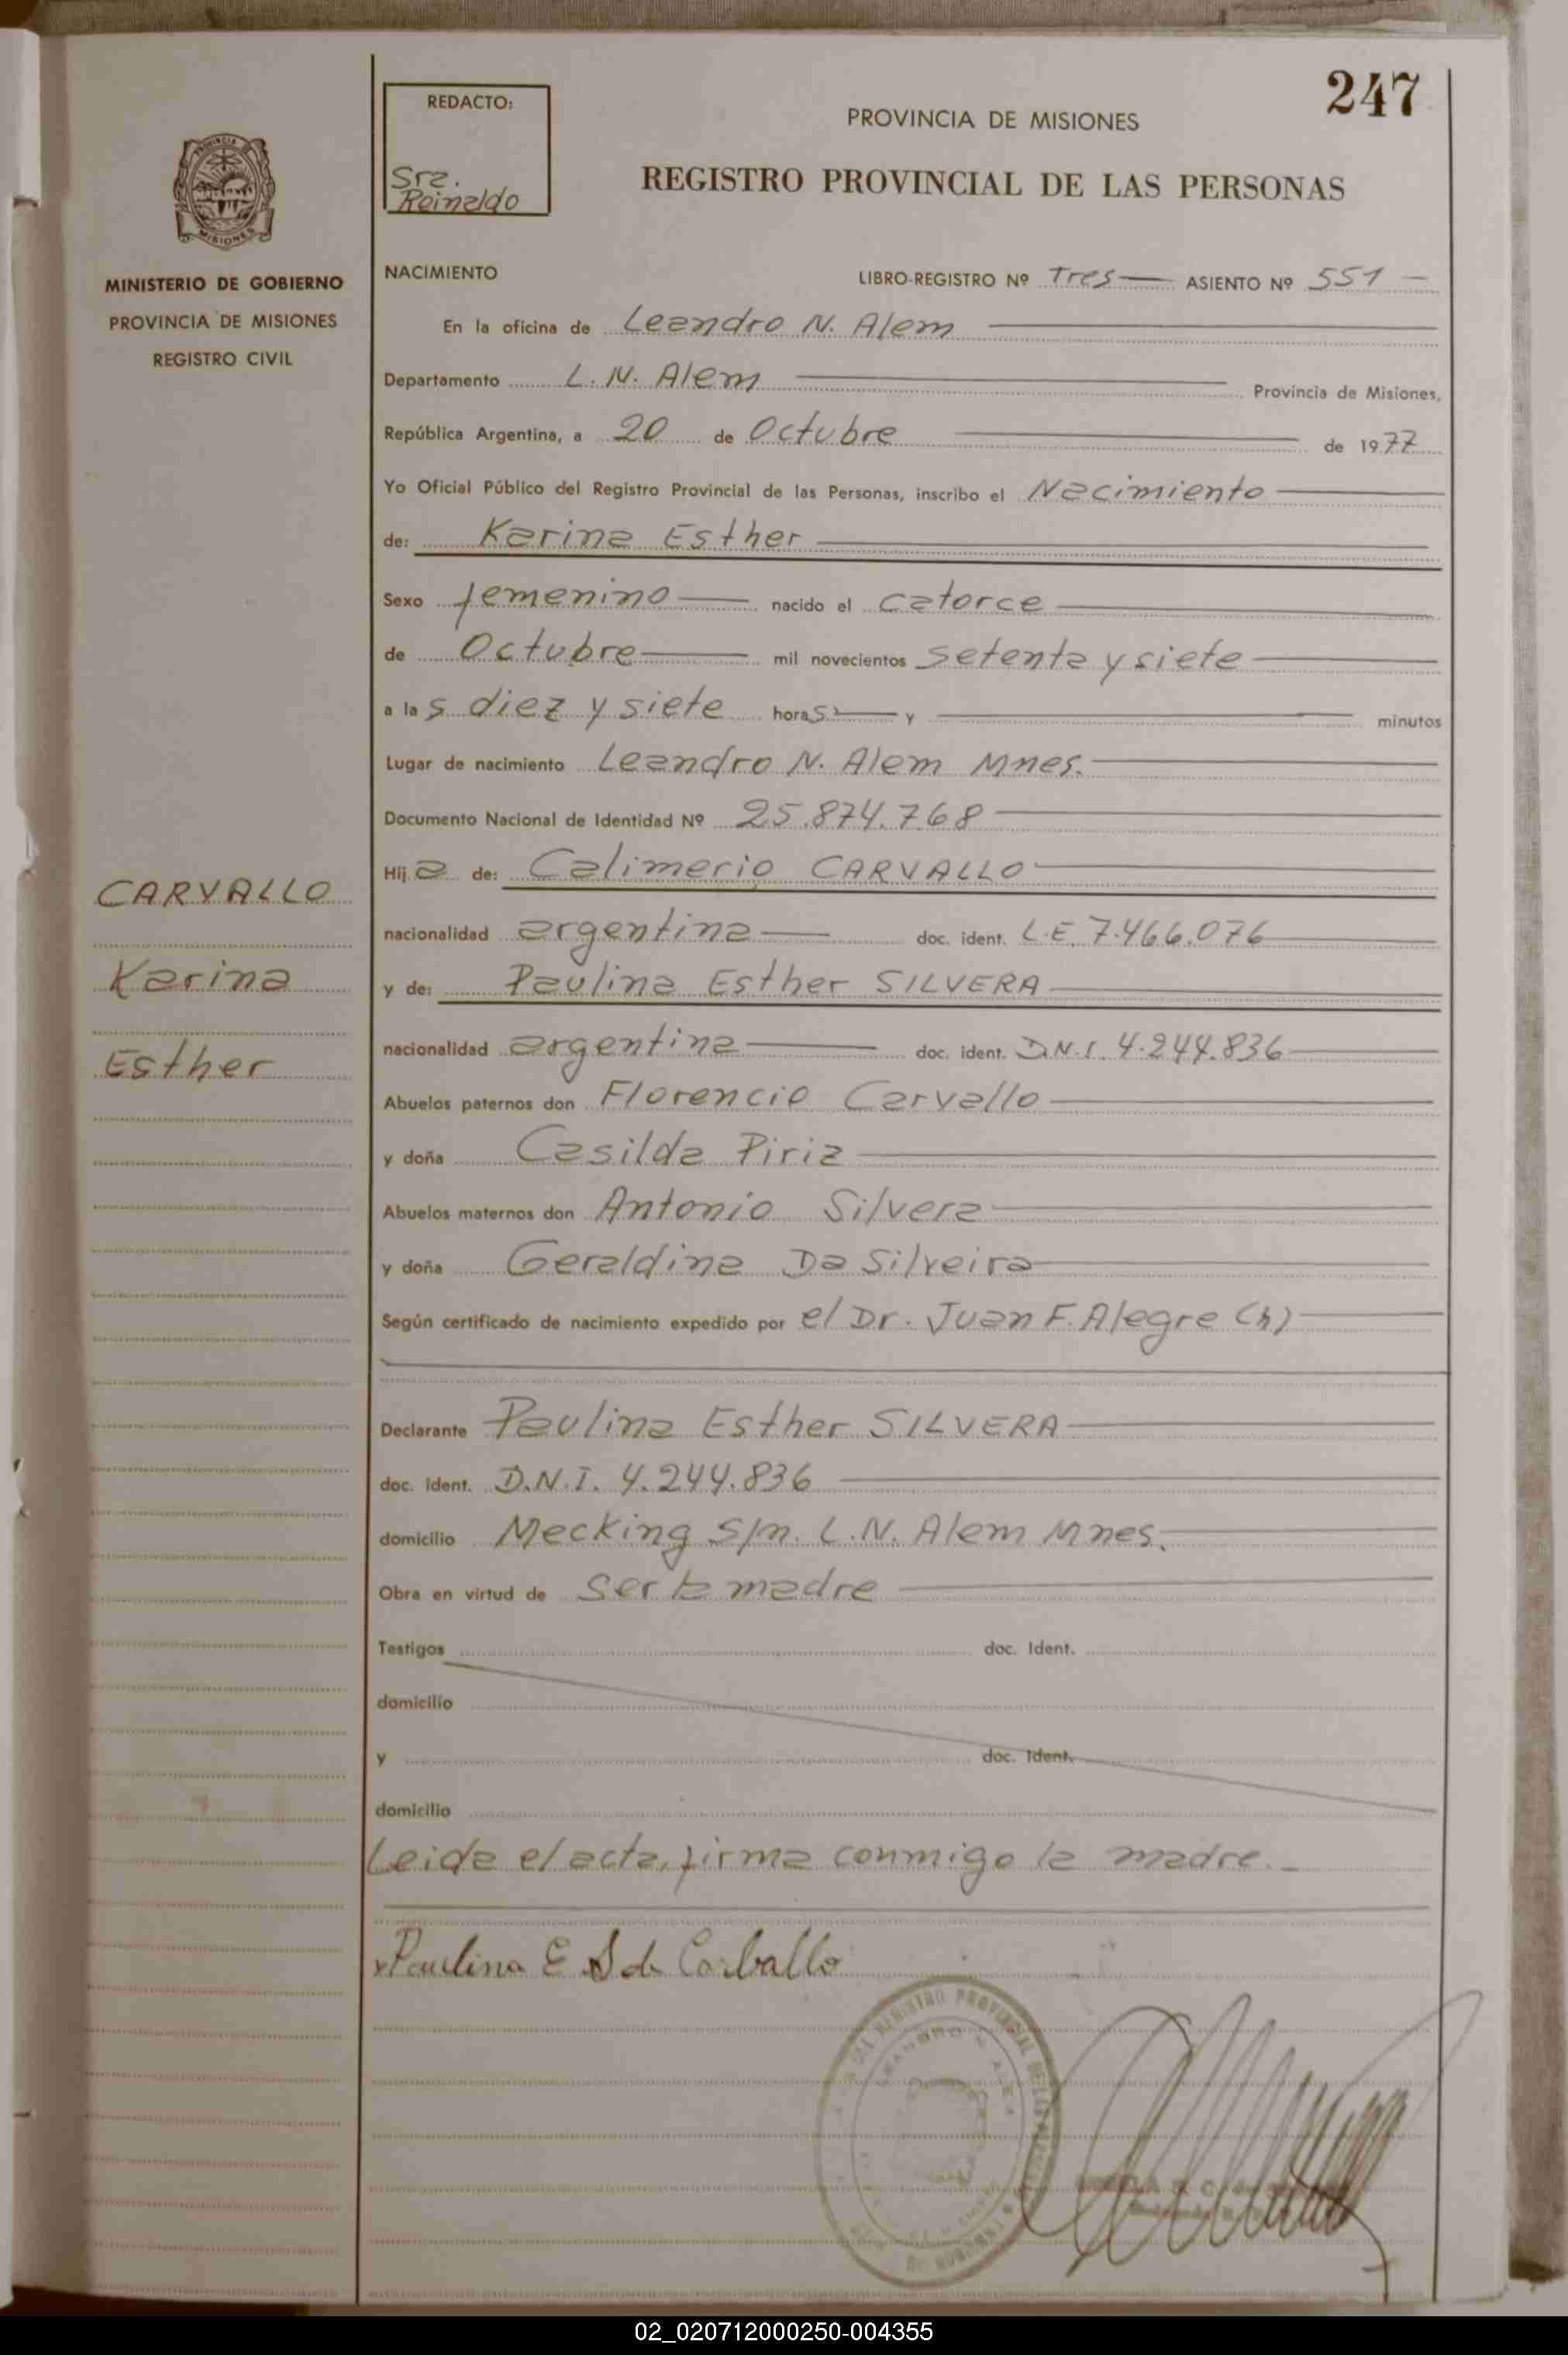 247
REDACTO:
Sra.
Reinaldo
PROVINCIA DE MISIONES
REGISTRO PROVINCIAL DE LAS PERSONAS
PROVINCIA DE
MISIONES
MINISTERIO DE GOBIERNO
PROVINCIA DE MISIONES
REGISTRO CIVIL
CARVALLO
Karina
Esther
NACIMIENTO LIBRO-REGISTRO Nº Tres ASIENTO Nº 551
En la oficina de Leandro N. Alem
Departamento L. N. Alem Provincia de Misiones,
República Argentina, a 20 de Octubre de 1977
Yo Oficial Público del Registro Provincial de las Personas, inscribo el Nacimiento
de: Karina Esther
Sexo femenino nacido el catorce
de Octubre mil novecientos setenta y siete
a las diez y siete horas y minutos
Lugar de nacimiento Leandro N. Alem Mnes.
Documento Nacional de Identidad Nº 25.874.768
Hija de: Calimerio CARVALLO
nacionalidad argentina doc. ident. L.E. 7.466.076
y de: Paulina Esther SILVERA
nacionalidad argentina doc. ident. D.N.I. 4.244.836
Abuelos paternos don Florencio Carvallo
y doña Casilda Piriz
Abuelos maternos don Antonio Silvera
y doña Geraldina Da Silveira
Según certificado de nacimiento expedido por el Dr. Juan F. Alegre (h)
Declarante Paulina Esther SILVERA
doc. Ident. D.N.I. 4.244.836
domicilio Mecking S/n. L.N. Alem Mnes.
Obra en virtud de ser la madre
Testigos doc. Ident.
domicilio
y doc. Ident.
domicilio
Leida el acta, firma conmigo la madre.
Paulina E S de Carballo
REGISTRO PROVINCIAL DE LAS
LEANDRO N. ALEM
02_020712000250-004355